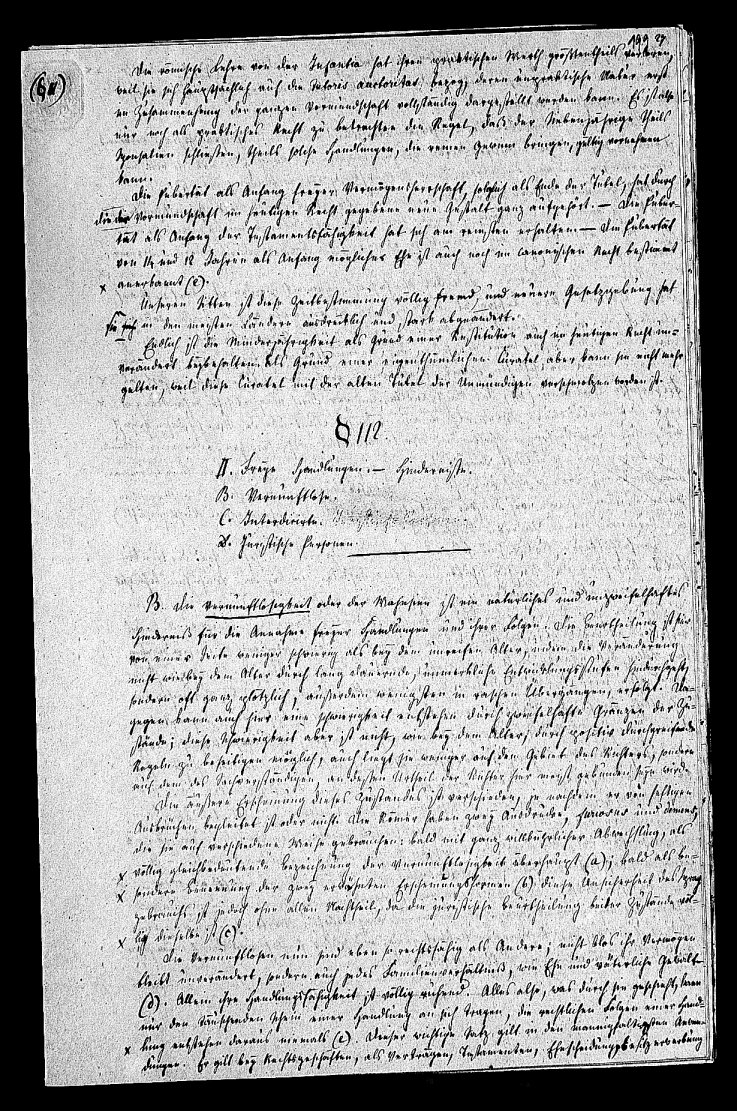 199 27
(§ 111)
Die römische Lehre von der Infantia hat ihren praktischen Werth größtentheils verloren,
weil sie sich hauptsächlich auf die tutoris auctoritas bezog, deren unpraktische Natur erst
im Zusammenhang der ganzen Vormundschaft vollständig dargestellt werden kann. Es ist also
nur noch als praktisches Recht zu betrachten die Regel, daß der Siebenjährige theils
Sponsalien schließen, theils solche Handlungen, die reinen Gewinn bringen, gültig vornehmen
kann.
Die Pubertät als Anfang freyer Vermögensherrschaft, folglich als Ende der Tutel, hat durch
die der Vormundschaft im heutigen Recht gegebene neue Gestalt ganz aufgehört. — Die Puber-
tät als Anfang der Testamentsfähigkeit hat sich am reinsten erhalten. — Die Pubertät
von 14 und 12 Jahren als Anfang möglicher Ehe ist auch noch im canonischen Recht bestimmt
x anerkannt (e).
Unseren Sitten ist diese Zeitbestimmung völlig fremd, und neuere Gesetzgebung hat
sie sich in den meisten Ländern ausdrücklich und stark abgeändert.
Endlich ist die Minderjährigkeit als Grund einer Restitution auch im heutigen Recht un-
verändert beybehalten. Als Grund einer eigenthümlichen Curatel aber kann sie nicht mehr
gelten, weil diese Curatel mit der alten Tutel der Unmündigen verschmolzen worden ist.
§ 112.
II. Freye Handlungen. — Hindernisse.
B. Vernunftlose.
C. Interdicirte.
D. Juristische Personen.
B. Die Vernunftlosigkeit oder der Wahnsinn ist ein natürliches und unzweifelhaftes
Hinderniß für die Annahme freyer Handlungen und ihrer Folgen. Die Beurtheilung ist hier
von einer Seite weniger schwierig als bey dem unreifen Alter, indem die Veränderung
nicht wie bey dem Alter durch lang dauernde, unmerkliche Entwicklungsstufen hindurchgeht,
sondern oft ganz plötzlich, außerdem wenigstens in raschen Übergängen, erfolgt. Da-
gegen kann auch hier eine Schwierigkeit entstehen durch zweifelhafte Gränzen der Zu-
stände; diese Schwierigkeit aber ist nicht, wie bey dem Alter, durch positiv durchgreifende
Regeln zu beseitigen möglich, auch liegt sie weniger auf dem Gebiet des Richters, sondern
auf dem des Sachverständigen, an dessen Urtheil der Richter hier meist gebunden seyn wird.
Die äußere Erscheinung dieses Zustandes ist verschieden, je nachdem er von heftigen
Ausbrüchen begleitet ist oder nicht. Die Römer haben zwey Ausdrücke, furiosus und demens,
die sie auf verschiedene Weise gebrauchen: bald mit ganz willkührlicher Abwechslung, als
x völlig gleichbedeutende Bezeichnung der Vernunftlosigkeit überhaupt (a); bald als be-
x sondere Benennung der zwey erwähnten Erscheinungsformen (b) diese Unsicherheit des Sprach
gebrauchs ist jedoch ohne allen Nachtheil, da die juristische Beurtheilung beider Zustände völ-
x lig dieselbe ist (c).
Die Vernunftlosen nun sind eben so rechtsfähig als Andere; nicht blos ihr Vermögen
bleibt unverändert, sondern auch jedes Familienverhältniß, wie Ehe und väterliche Gewalt
(d). Allein ihre Handlungsfähigkeit ist völlig ruhend. Alles also, was durch sie geschieht, kann
nur den täuschenden Schein einer Handlung an sich tragen, die rechtlichen Folgen einer Hand-
x lung entstehen daraus niemals (e). Dieser wichtige Satz gilt in den mannigfaltigsten Anwen-
dungen. Er gilt bey Rechtsgeschäften, als Verträgen, Testamenten, Ehescheidung, Besitzerwerbung